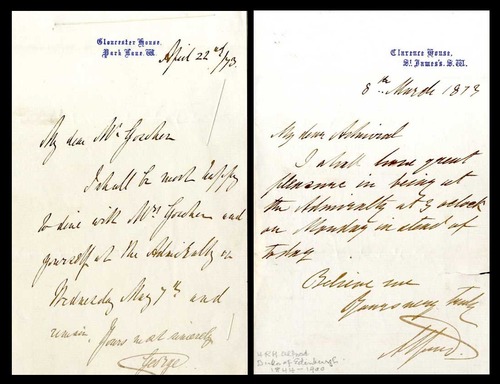 Gloucester House,
Park Lane. W.
April 22nd/73
My dear Mr. Goschen
I shall be most happy
to dine with Mrs Goschen and
yourself at the Admiralty on
Wednesday May 7th. and
remain, Yours most sincerely
George
Clarence House,
St. James's. S.W.
8th March 1873
My dear Admiral
I shall have great
pleasure in being at
the Admiralty at 3 o'clock
on Monday instead of
today
Believe me
Yours very truly
Alfred
H.R.H Alfred
Duke of Edinburgh
1844-1900